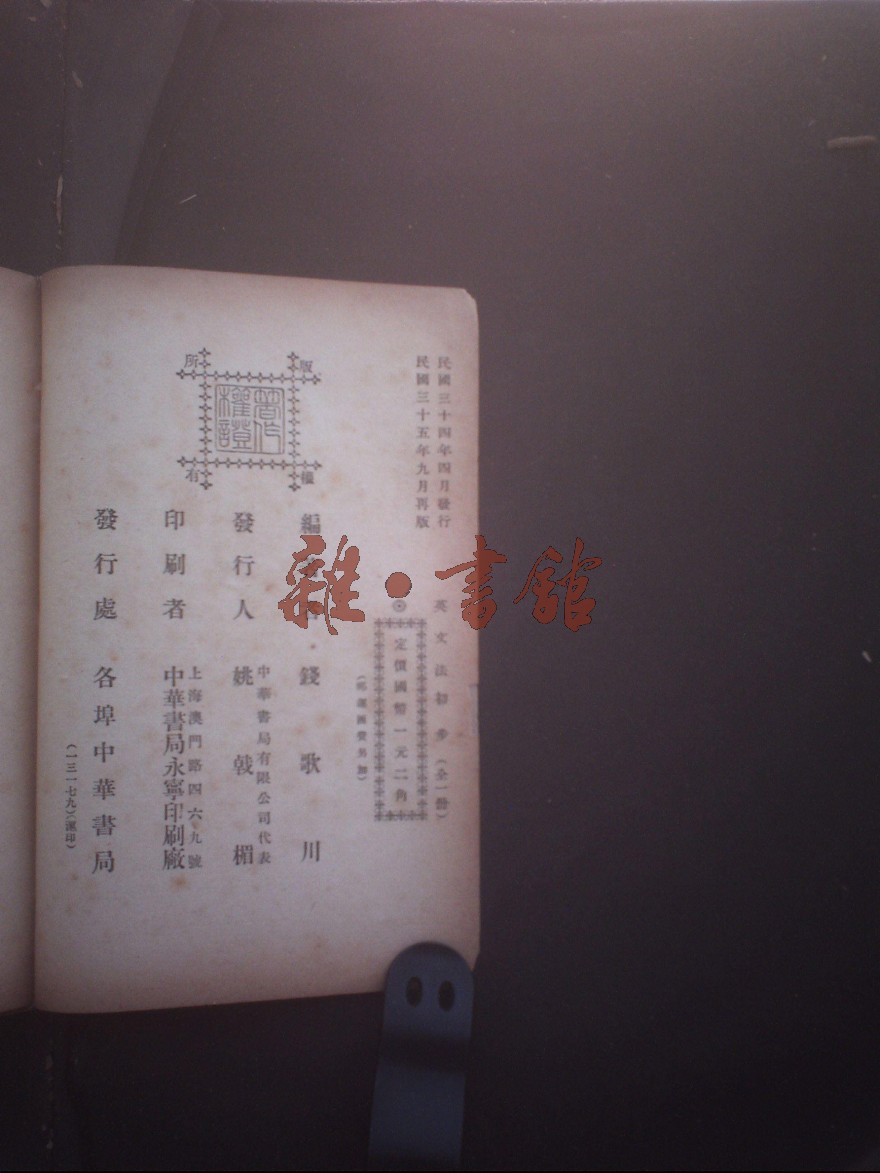 民國三十四年四月發行
民國三十五年九月再版
英文法初步(全一冊)
◎
定價國幣一元二角
(郵運匯費另加)
版權所有
著作權證
編 錢歌川
發行人 中華書局有限公司代表
姚戟楣
印刷者 上海澳門路四六九號
中華書局永寧印刷廠
發行處 各埠中華書局
(一三一七九)(滬印)
雜·書館